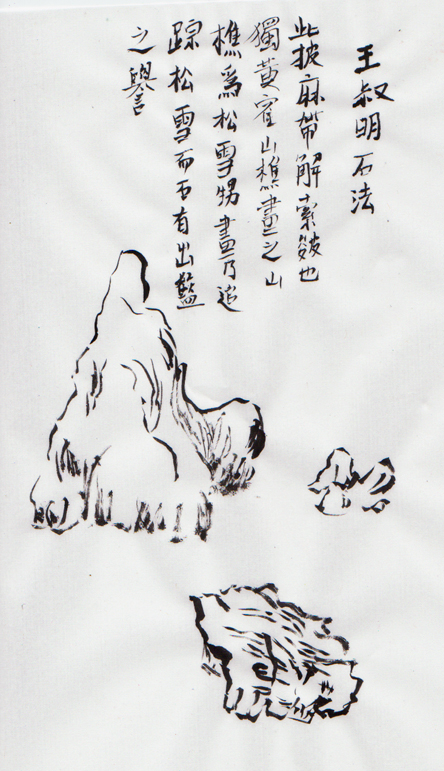 王叔明石法
此披麻帶解索皴也
獨黃寉山樵畫之山
樵爲松雪甥畫乃追
踪松雪而有出藍
之譽